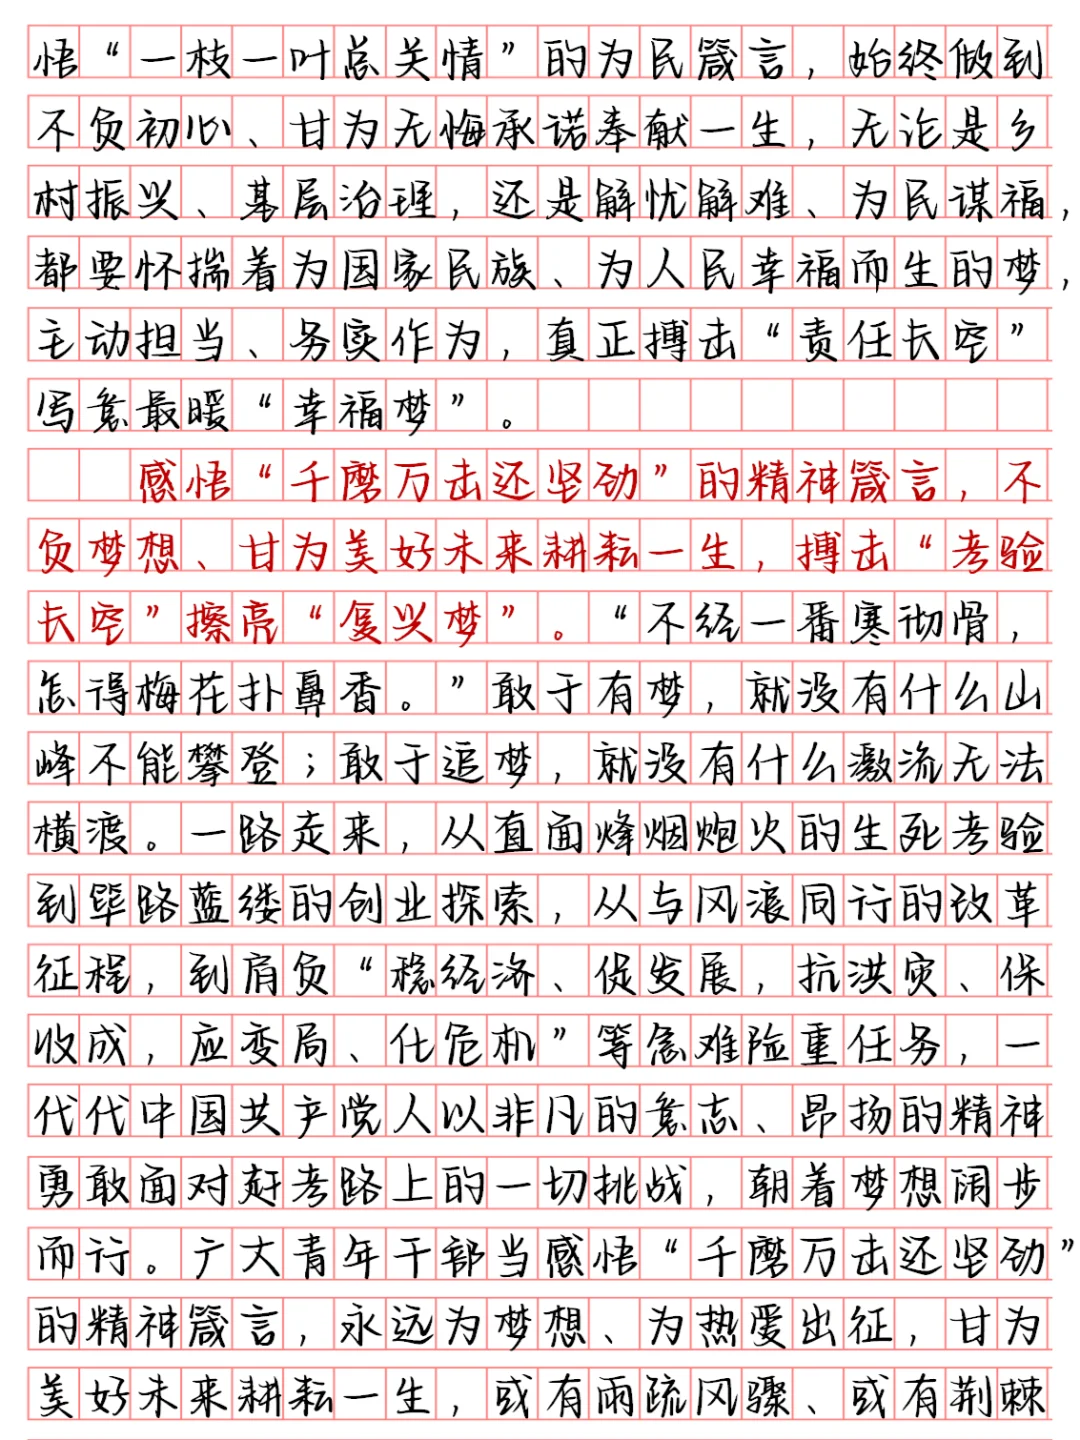 悟“一枝一叶总关情”的为民箴言，始终做到
不负初心、甘为无悔承诺奉献一生，无论是乡
村振兴、基层治理，还是解忧解难、为民谋福，
都要怀揣着为国家民族、为人民幸福而生的梦，
主动担当、务实作为，真正搏击“责任长空”
写意最暖“幸福梦”。
感悟“千磨万击还坚劲”的精神箴言，不
负梦想、甘为美好未来耕耘一生，搏击“考验
长空”擦亮“复兴梦”。“不经一番寒彻骨，
怎得梅花扑鼻香。”敢于有梦，就没有什么山
峰不能攀登；敢于追梦，就没有什么激流无法
横渡。一路走来，从直面烽烟炮火的生死考验
到筚路蓝缕的创业探索，从与风浪同行的改革
征程，到肩负“稳经济、促发展，抗洪灾、保
收成，应变局、化危机”等急难险重任务，一
代代中国共产党人以非凡的意志、昂扬的精神
勇敢面对赶考路上的一切挑战，朝着梦想阔步
而行。广大青年干部当感悟“千磨万击还坚劲”
的精神箴言，永远为梦想、为热爱出征，甘为
美好未来耕耘一生，或有雨疏风骤、或有荆棘